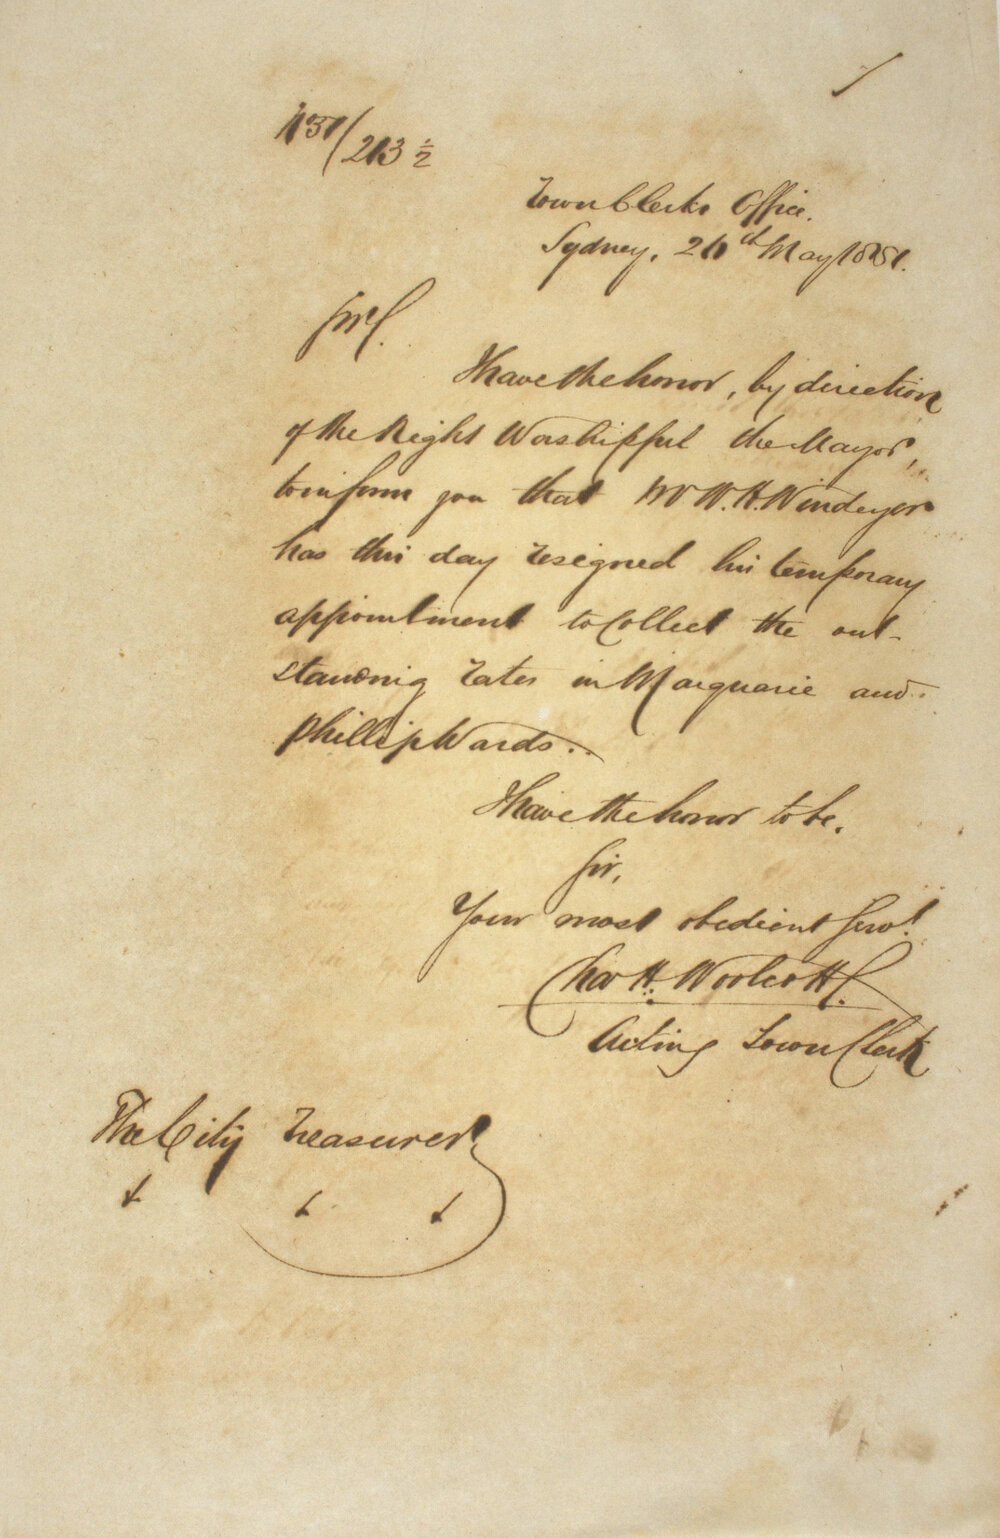 213 ½
Town Clerks Office.
Sydney, 26th May 1851.
Sir,
I have the honor, by direction
of the Right Worshipful the Mayor,
to inform you that Mr W. H. Windeyer
has this day resigned his temporary
appointment to Collect the out-
standing rates in Marquarie and
Phillip Wards..
I have the honor to be,
Sir,
Your most obedient Servt
Chas H. Woolcott
Acting Town Clerk
The City Treasurer